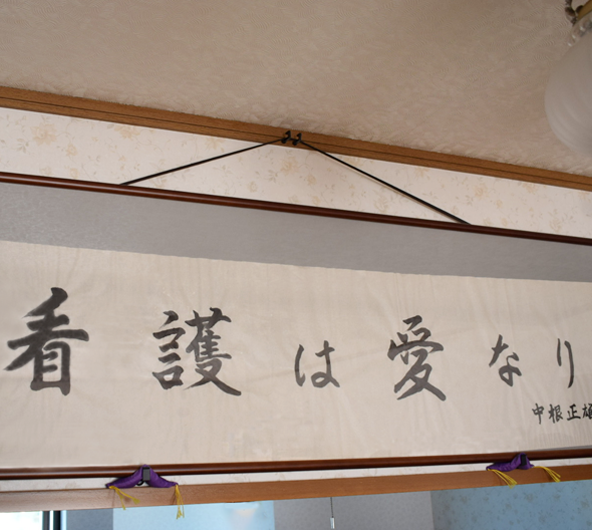 看護は愛なり
中根正雄